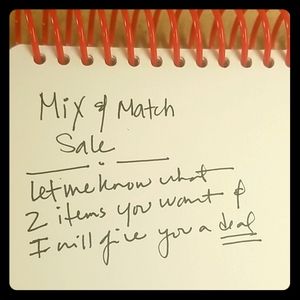 Mix & Match
Sale
Let me know what
2 items you want &
I will give you a deal